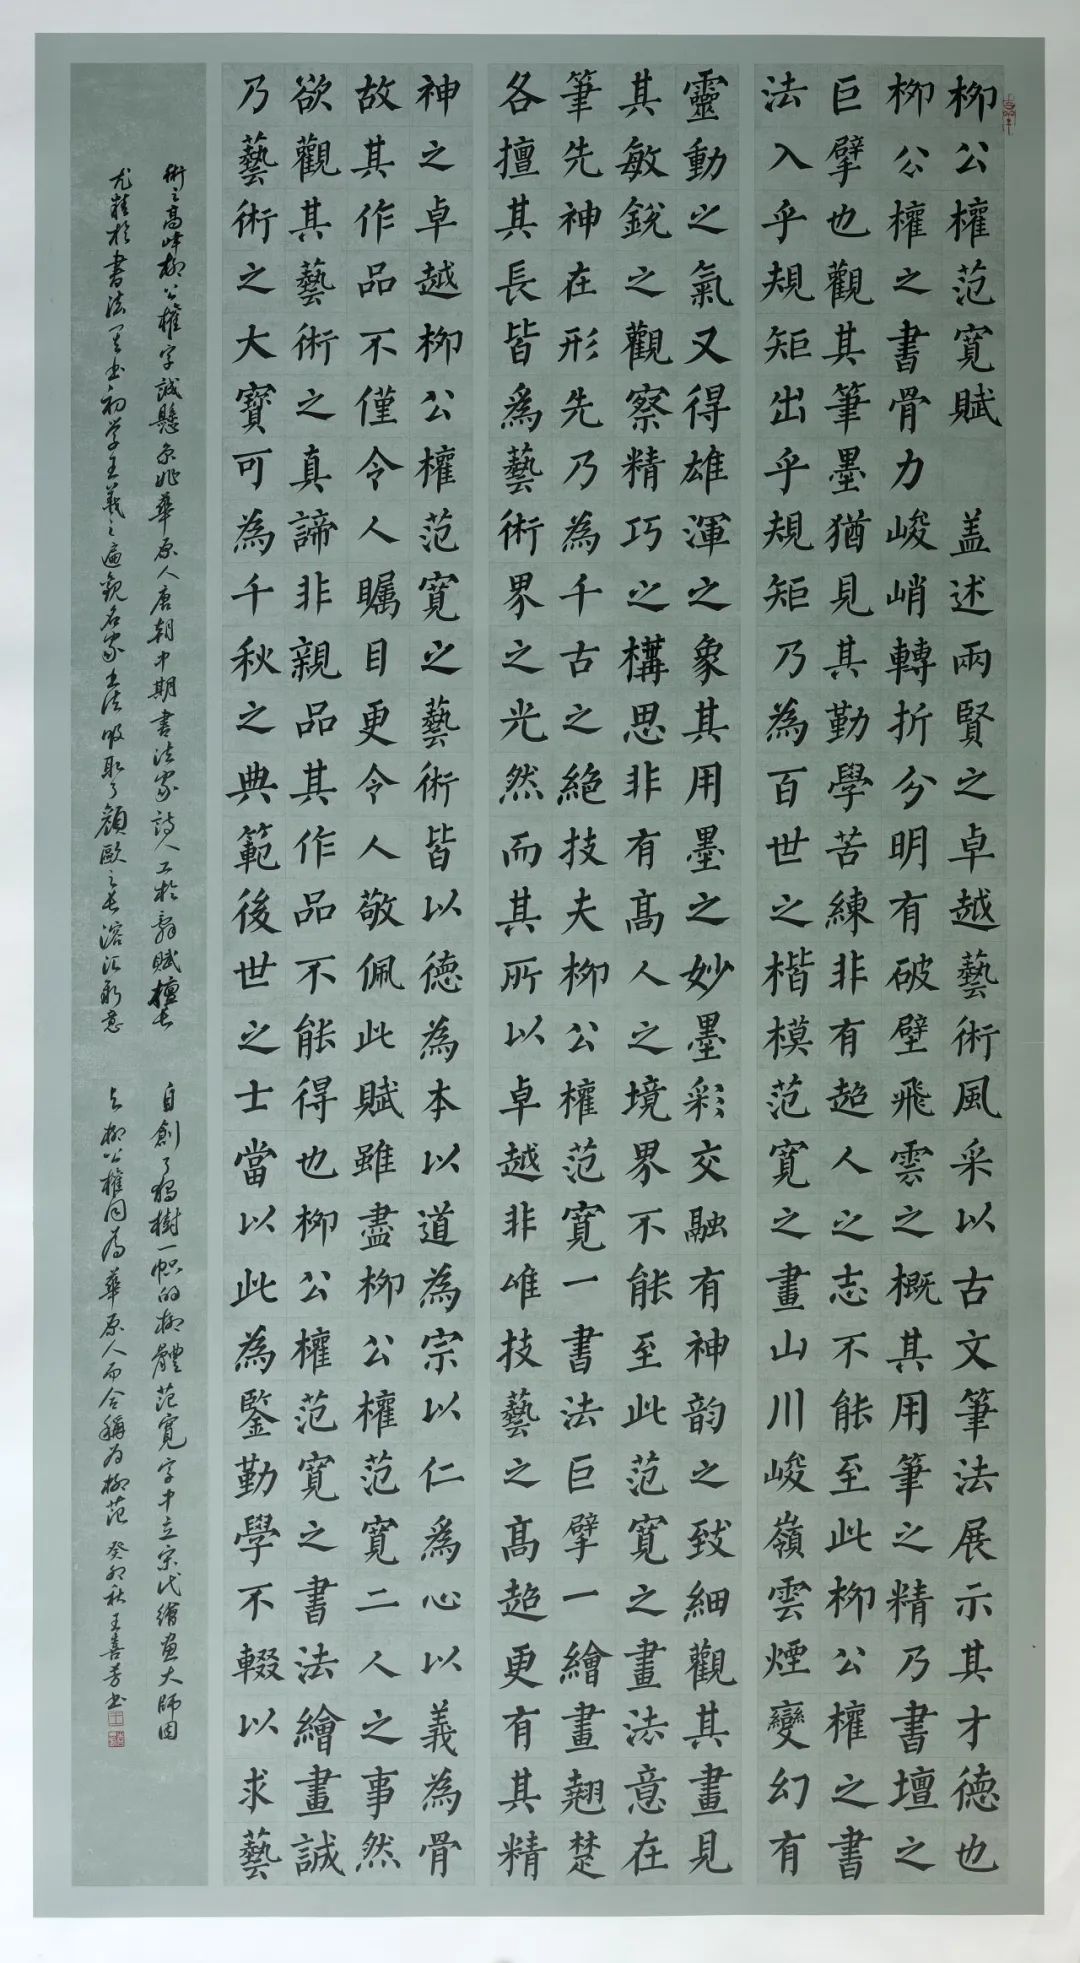 柳公權范寬賦 盖述兩賢之卓越藝術風采以古文筆法展示其才德也
柳公權之書骨力峻峭轉折分明有破壁飛雲之概其用筆之精乃書壇之
巨擘也觀其筆墨猶見其勤學苦練非有超人之志不能至此柳公權之書
法入乎規矩出乎規矩乃為百世之楷模范寬之畫山川峻嶺雲煙變幻有
靈動之氣又得雄渾之象其用墨之妙墨彩交融有神韵之致細觀其畫見
其敏銳之觀察精巧之構思非有高人之境界不能至此范寬之畫法意在
筆先神在形先乃為千古之絕技夫柳公權范寬一書法巨擘一繪畫翹楚
各擅其長皆為藝術界之光然而其所以卓越非唯技藝之高超更有其精
神之卓越柳公權范寬之藝術皆以德為本以道為宗以仁為心以義為骨
故其作品不僅令人矚目更令人敬佩此賦雖盡柳公權范寬二人之事然
欲觀其藝術之真諦非親品其作品不能得也柳公權范寬之書法繪畫誠
乃藝術之大寶可為千秋之典範後世之士當以此為鑒勤學不輟以求藝
術之高峰柳公權字誠懸京兆華原人唐朝中期書法家詩人工於辭賦擅長
尤精於書法買書初學王羲之遍觀名家書法吸取了顏歐之長溶汇新意
自創了獨樹一幟的柳體范寬字中立宋代繪画大師因
与柳公權同為華原人而合稱为柳范 癸卯秋王喜芳书